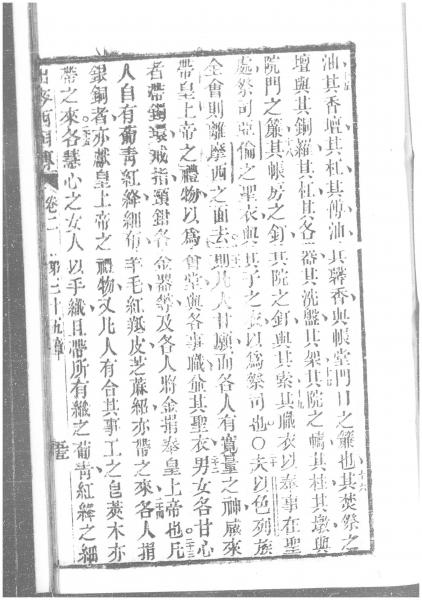 油其香壇其杜其傅油其馨香與帳堂門口之簾也其焚祭之
壇與其銅羅其杜其各器其洗盤其架其院之幬其柱其墩與
院門之簾其帳房之釘其院之釘與其索其職衣以奉事在聖
處祭司亞倫之聖衣與其子之衣以爲祭司也○夫以色列族
全會則離摩西之面去則凡人甘願而各人有寬量之神感來
帶皇上帝之禮物以爲會堂與各事職兼其聖衣男女各甘心
者帶鐲環戒指頸鏈各金器等及各人將金捐奉皇上帝也凡
人自有葡青紅絳細布羊毛紅羝皮芝蔴貂亦帶之來各人捐
銀銅者亦獻皇上帝之禮物又凡人有合其事工之皂莢木亦
帶之來各慧心之女人以手織且帶所有織之葡青紅絳之細
出麥西國傳 卷二 第三十五章